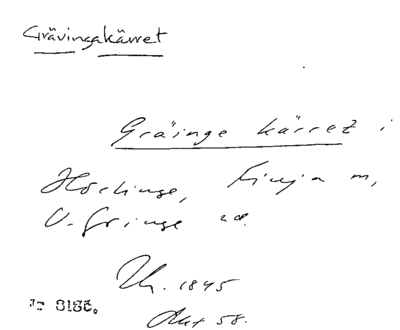 Grävingakärret
Gräinge kärret i
Hörlinge, Finja m,
V. Göinge
1845
Akt 58.